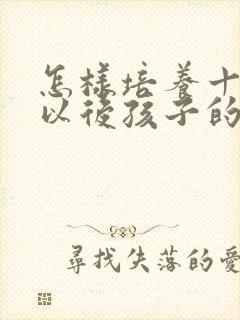 怎樣培養十
以後孩子的
尋找失落的愛